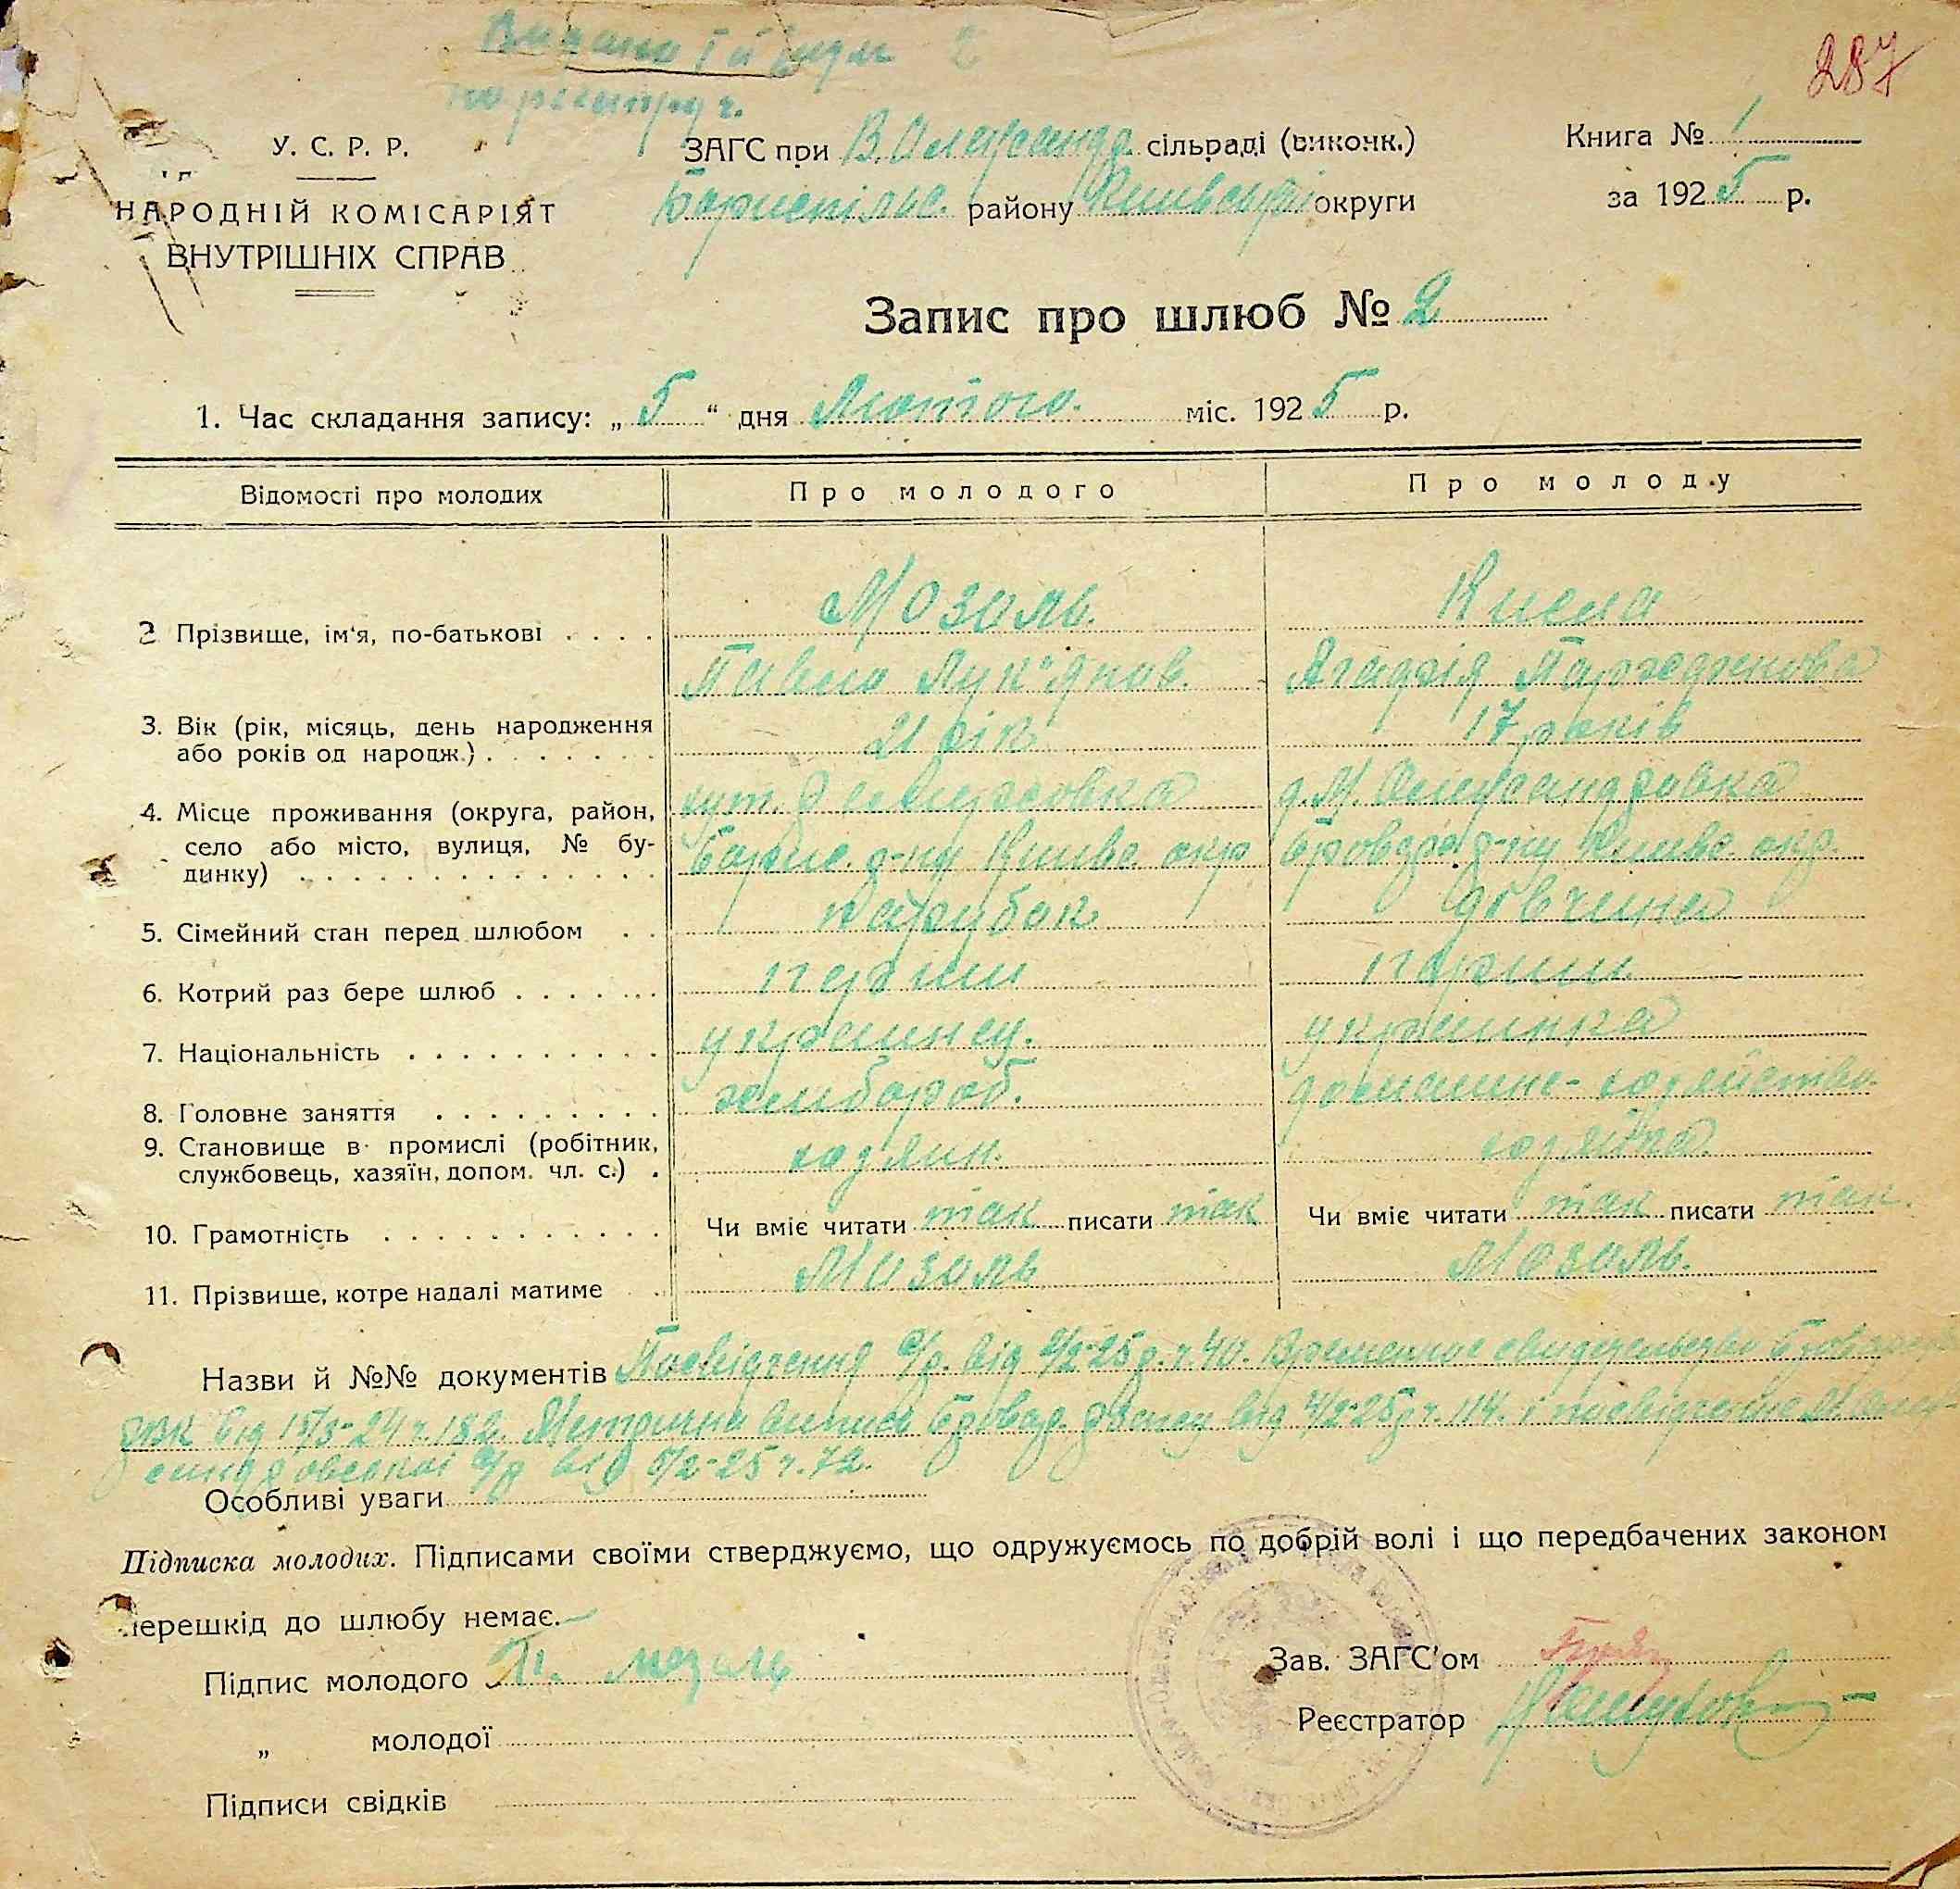 287
У. С. Р. Р.
НАРОДНІЙ КОМІСАРІЯТ
ВНУТРІШНІХ СПРАВ
ЗАГС при В. Олександр. сільраді (виконк.)
Бориспільс. району Київської округи
Книга № 1
за 1925 р.
Запис про шлюб № 2
1. Час складання запису: „5“ дня Лютого. міс. 1925 р.
Відомості про молодих
Про молодого
Про молоду
2 Прізвище, ім‘я, по-батькові . . . .
Мозоль.
Павло Лук"янов.
Кисла
Агафія Парфенова
3. Вік (рік, місяць, день народження
або років од народж.) . . . . . . .
21 рік
17 років
4. Місце проживання (округа, район,
село або місто, вулиця, № бу-
динку) . . . . . . . . . . . . . .
хут.
Борис. р-ну Київс. окр
д. М. Олександровка
Бровар. р-ну Київс. окр.
5. Сімейний стан перед шлюбом . .
парубок.
дівчина
6. Котрий раз бере шлюб . . . . . . .
перши
перши.
7. Національність . . . . . . . . . .
украинец.
украинка
8. Головне заняття . . . . . . . . .
хлибороб.
домашне-хозяйство.
9. Становище в промислі (робітник,
службовець, хазяїн, допом. чл. с.) .
хозяин.
хозяйка.
10. Грамотність . . . . . . . . . . .
Чи вміє читати так писати так
Чи вміє читати так писати так.
11. Прізвище, котре надалі матиме . .
Мозоль
Мозоль.
Назви й №№ документів Посвідчення с/р. від 2/2-25 р. ч. 40. Временное свидетельство
РВК від 15/3-24 ч. 182. Метрична випись Бровар. від 4/2-25 р ч. 114. і посвідчение М. Олек-
сандровської с/р від 5/2-25 ч. 72.
Особливі уваги
Підписка молодих. Підписами своїми стверджуємо, що одружуємось по добрій волі і що передбачених законом
перешкід до шлюбу немає.
Підпис молодого П. мозоль
„ молодої
Підписи свідків
Зав. ЗАГС‘ом
Реєстратор